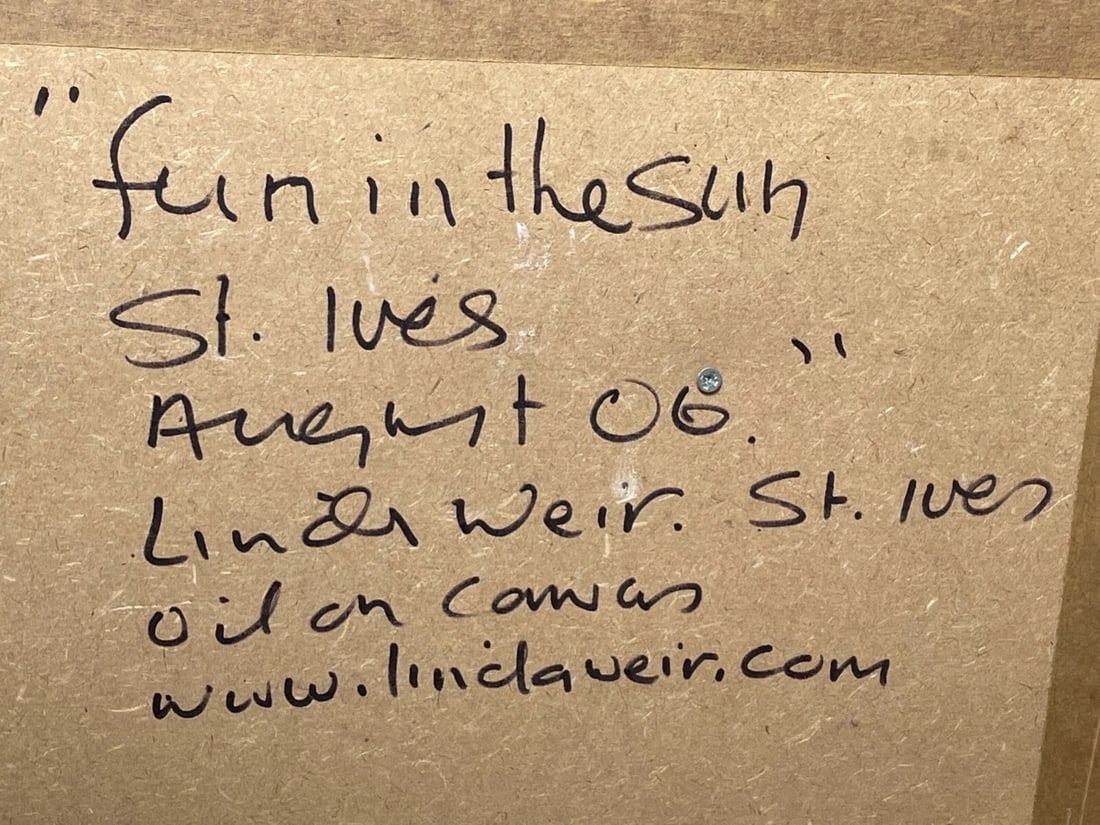 "fun in the sun
St. Ives
August 06."
Linda Weir. St. Ives
oil on canvas
www.lindaweir.com